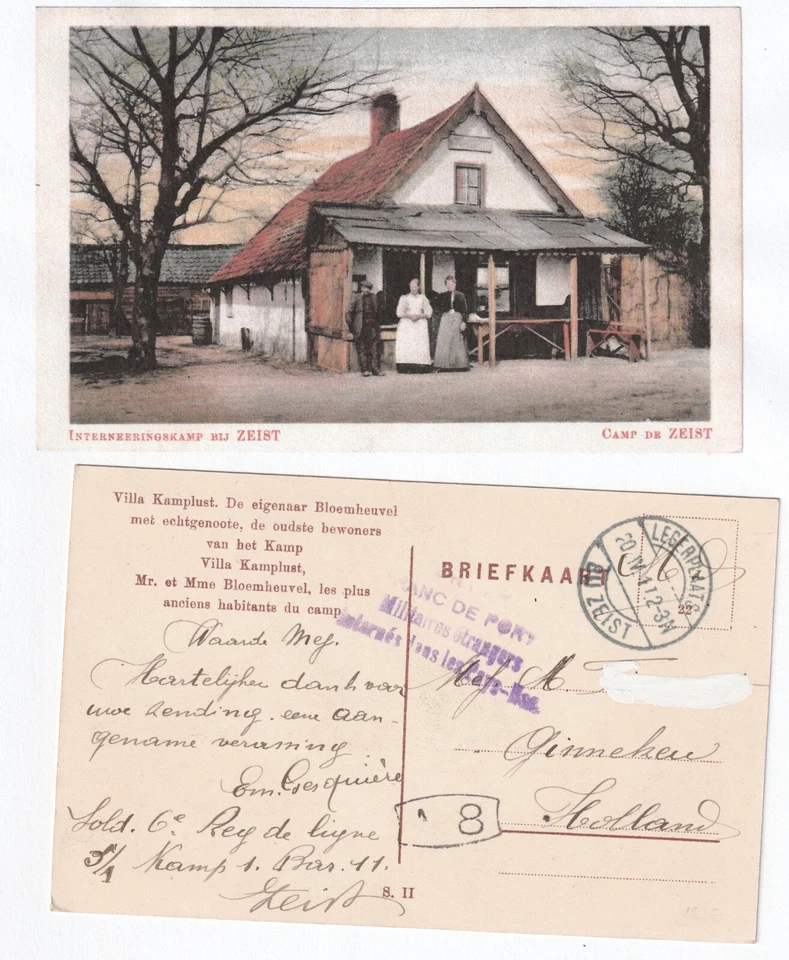 INTERNEERINGSKAMP BIJ ZEIST
CAMP DE ZEIST
Villa Kamplust. De eigenaar Bloemheuvel
met echtgenoote, de oudste bewoners
van het Kamp
Villa Kamplust,
Mr. et Mme Bloemheuvel, les plus
anciens habitants du camp
BRIEFKAART
22
LEGERPLAATS
BIJ ZEIST
2-3N
FRANC DE PORT
Militaires étrangers
internés dans les Pays-Bas.
Waarde Mej.
Hartelijken dank voor
uwe zending. eene aan-
gename verassing
Em. Gesquière
Sold. 6e Reg de ligne
5/1 Kamp 1. Bar. 11.
Zeist
Mej. M.
Ginneken
Holland
8
S. II